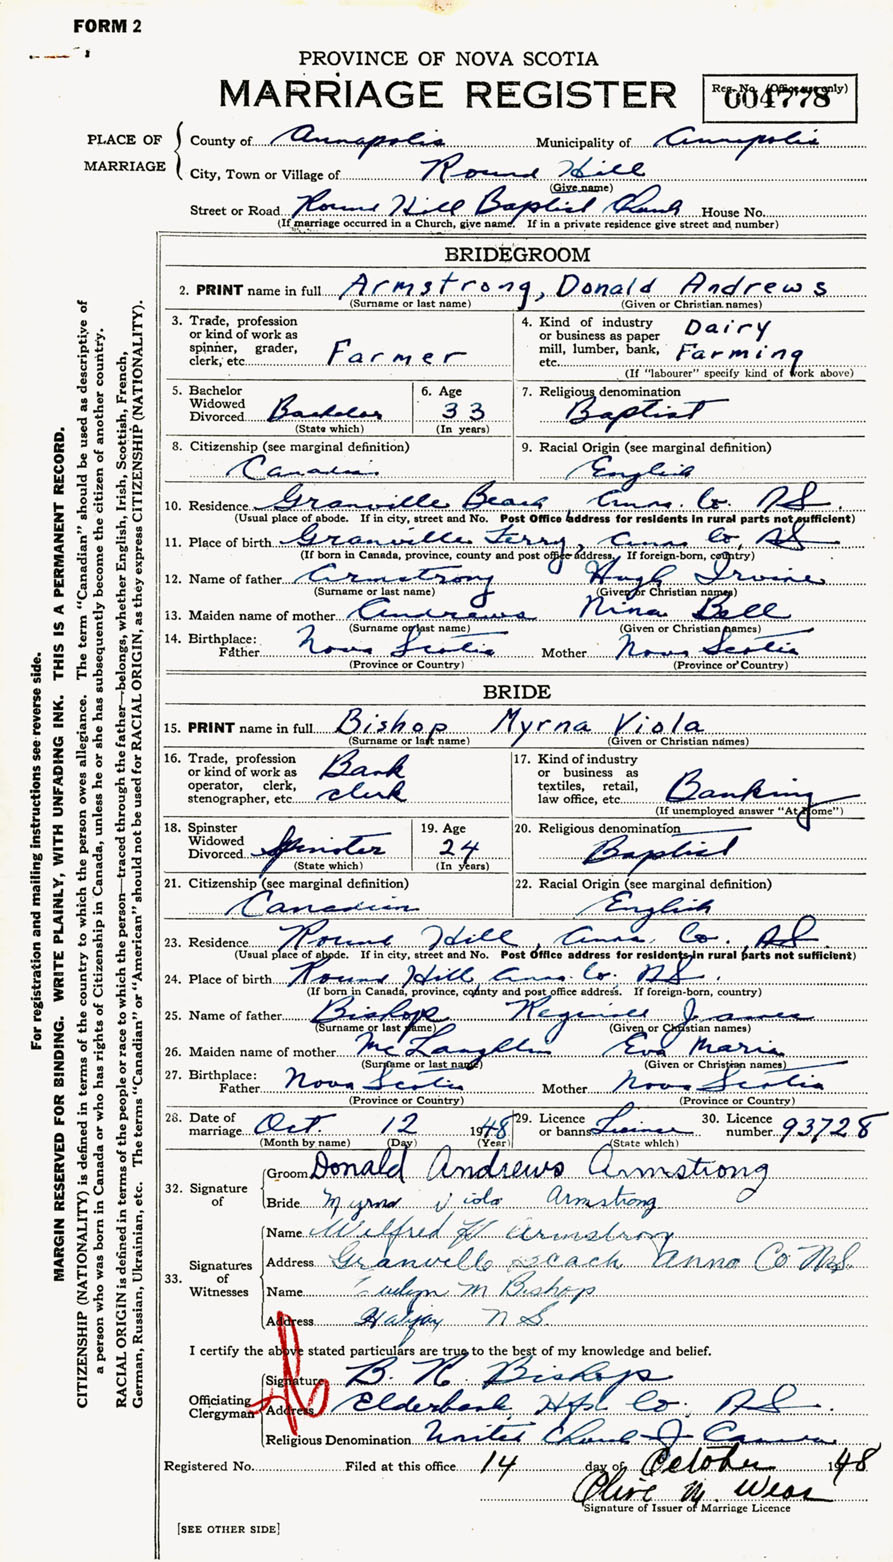 FORM 2
PROVINCE OF NOVA SCOTIA
MARRIAGE REGISTER
Reg. No. (Office use only)
004778
PLACE OF MARRIAGE
County of Annapolis Municipality of Annapolis
City, Town or Village of Round Hill
(Give name)
Street or Road Round Hill Baptist Church House No.
(If marriage occurred in a Church, give name. If in a private residence give street and number)
BRIDEGROOM
2. PRINT name in full Armstrong, Donald Andrews
(Surname or last name) (Given or Christian names)
3. Trade, profession or kind of work as spinner, grader, clerk, etc. Farmer
4. Kind of industry or business as paper mill, lumber, bank, etc. Dairy Farming
(If "labourer" specify kind of work above)
5. Bachelor Widowed Divorced Bachelor
(State which)
6. Age 33
(In years)
7. Religious denomination
Baptist
8. Citizenship (see marginal definition)
Canadian
9. Racial Origin (see marginal definition)
English
10. Residence Granville Beach Anna. Co. N.S.
(Usual place of abode. If in city, street and No. Post Office address for residents in rural parts not sufficient)
11. Place of birth Granville Ferry, Anna Co, N.S.
(If born in Canada, province, county and post office address. If foreign-born, country)
12. Name of father Armstrong Hugh Irvine
(Surname or last name) (Given or Christian names)
13. Maiden name of mother Andrews Nina Bell
(Surname or last name) (Given or Christian names)
14. Birthplace:
Father Nova Scotia Mother Nova Scotia
(Province or Country) (Province or Country)
BRIDE
15. PRINT name in full Bishop Myrna Viola
(Surname or last name) (Given or Christian names)
16. Trade, profession or kind of work as operator, clerk, stenographer, etc. Bank clerk
17. Kind of industry or business as textiles, retail, law office, etc. Banking
(If unemployed answer "At Home")
18. Spinster Widowed Divorced Spinster
(State which)
19. Age 24
(In years)
20. Religious denomination
Baptist
21. Citizenship (see marginal definition)
Canadian
22. Racial Origin (see marginal definition)
English
23. Residence Round Hill, Anna. Co. N.S.
(Usual place of abode. If in city, street and No. Post Office address for residents in rural parts not sufficient)
24. Place of birth Round Hill Anna. Co. N.S.
(If born in Canada, province, county and post office address. If foreign-born, country)
25. Name of father Bishop Reginald James
(Surname or last name) (Given or Christian names)
26. Maiden name of mother McLaughlin Eva Maria
(Surname or last name) (Given or Christian names)
27. Birthplace:
Father Nova Scotia Mother Nova Scotia
(Province or Country) (Province or Country)
28. Date of marriage Oct. 12 1948
(Month by name) (Day) (Year)
29. Licence or banns Licence
(State which)
30. Licence number 93728
32. Signature of
Groom Donald Andrews Armstrong
Bride Myrna Viola Armstrong
33. Signatures of Witnesses
Name Wilfred H Armstrong
Address Granville Beach Anna Co N.S.
Name Evelyn M Bishop
Address Halifax N S.
I certify the above stated particulars are true to the best of my knowledge and belief.
Officiating Clergyman
Signature B. R. Bishop
Address Elderbank Hfx Co. N.S.
Religious Denomination United Church of Canada
Registered No. Filed at this office 14 day of October 1948
Olive M. Wear
Signature of Issuer of Marriage Licence
[SEE OTHER SIDE]
For registration and mailing instructions see reverse side.
MARGIN RESERVED FOR BINDING. WRITE PLAINLY, WITH UNFADING INK. THIS IS A PERMANENT RECORD.
CITIZENSHIP (NATIONALITY) is defined in terms of the country to which the person owes allegiance. The term "Canadian" should be used as descriptive of
a person who was born in Canada or who has rights of Citizenship in Canada, unless he or she has subsequently become the citizen of another country.
RACIAL ORIGIN is defined in terms of the people or race to which the person—traced through the father—belongs, whether English, Irish, Scottish, French,
German, Russian, Ukrainian, etc. The terms "Canadian" or "American" should not be used for RACIAL ORIGIN, as they express CITIZENSHIP (NATIONALITY).